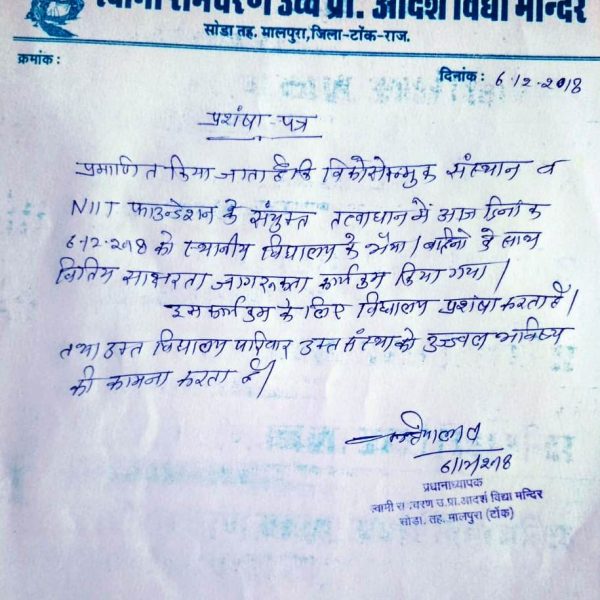 स्वामी रामचरण उच्च प्रा. आदर्श विद्या मन्दिर
सोडा तह. मालपुरा, जिला-टोंक-राज.
क्रमांक :
दिनांक : 6.12.2018
प्रशंषा-पत्र
प्रमाणित किया जाता है कि विकोसोन्मुक संस्थान व
NIIT फाउन्डेशन के संयुक्त तत्वाधान में आज दिनांक
6.12.2018 को स्थानीय विद्यालय के भैया / बहिनो के साथ
वितिय साक्षरता जागरूकता कार्यक्रम किया गया |
इस कार्यक्रम के लिए विद्यालय प्रशंषा करता है |
तथा उक्त विद्यालय परिवार उक्त संस्था को उज्जवल भविष्य
की कामना करता है |
6/12/2018
प्रधानाध्यापक
स्वामी रामचरण उ.प्रा.आदर्श विद्या मन्दिर
सोडा, तह. मालपुरा (टोंक)